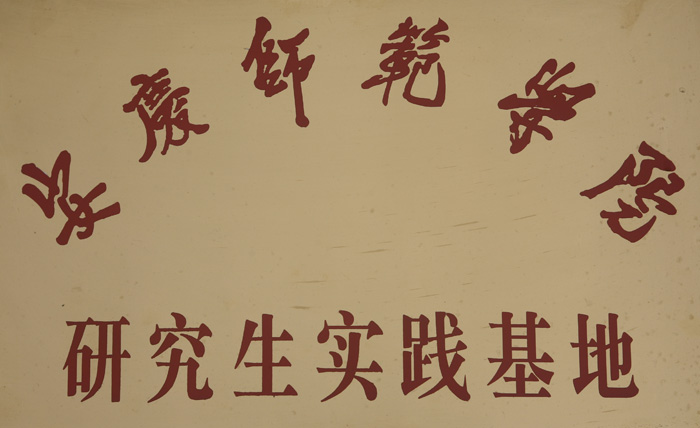 安慶師範學院
研究生实践基地